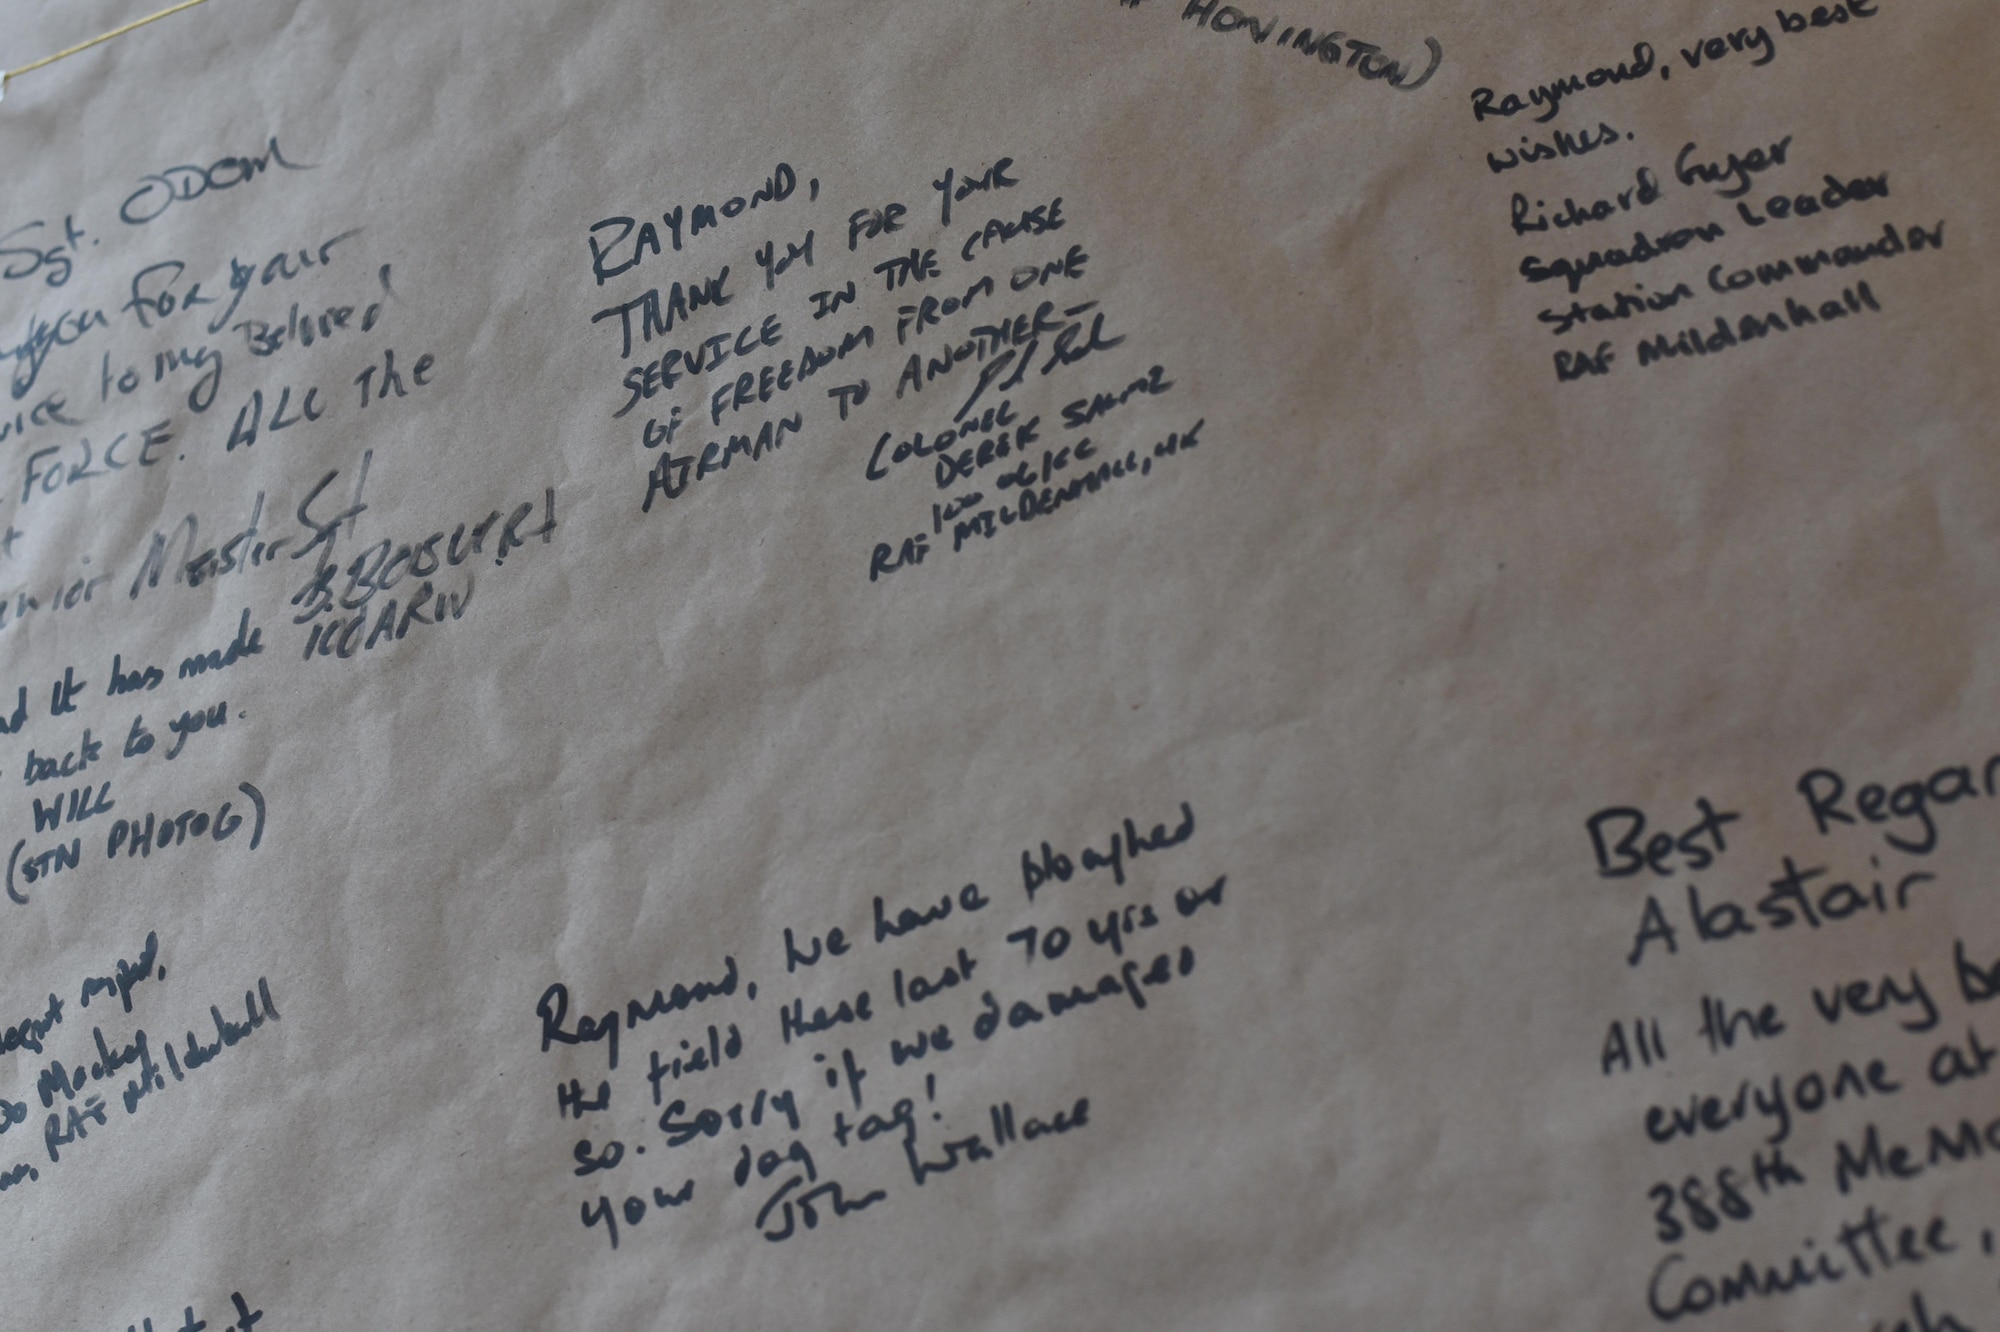 HONINGTON)
Raymond, very best
wishes.
Richard Guyer
Squadron Leader
Station Commander
RAF Mildenhall
Sgt. ODOM
you For your
to my Beloved
FORCE. ALL The
Master Sgt
RAYMOND,
THANK YOU FOR YOUR
SERVICE IN THE CAUSE
OF FREEDOM FROM ONE
AIRMAN TO ANOTHER-
COLONEL
DEREK SALMI
RAF MILDENHALL, UK
It has made
back to you.
WILL
(STN PHOTOG)
RAF Mildenhall
Raymond, we have ploughed
the field these last 70 yrs or
so. Sorry if we damaged
your dog tag!
John Wallace
Best Regar
Alastair
All the very be
everyone at
388th Memo
Committee,